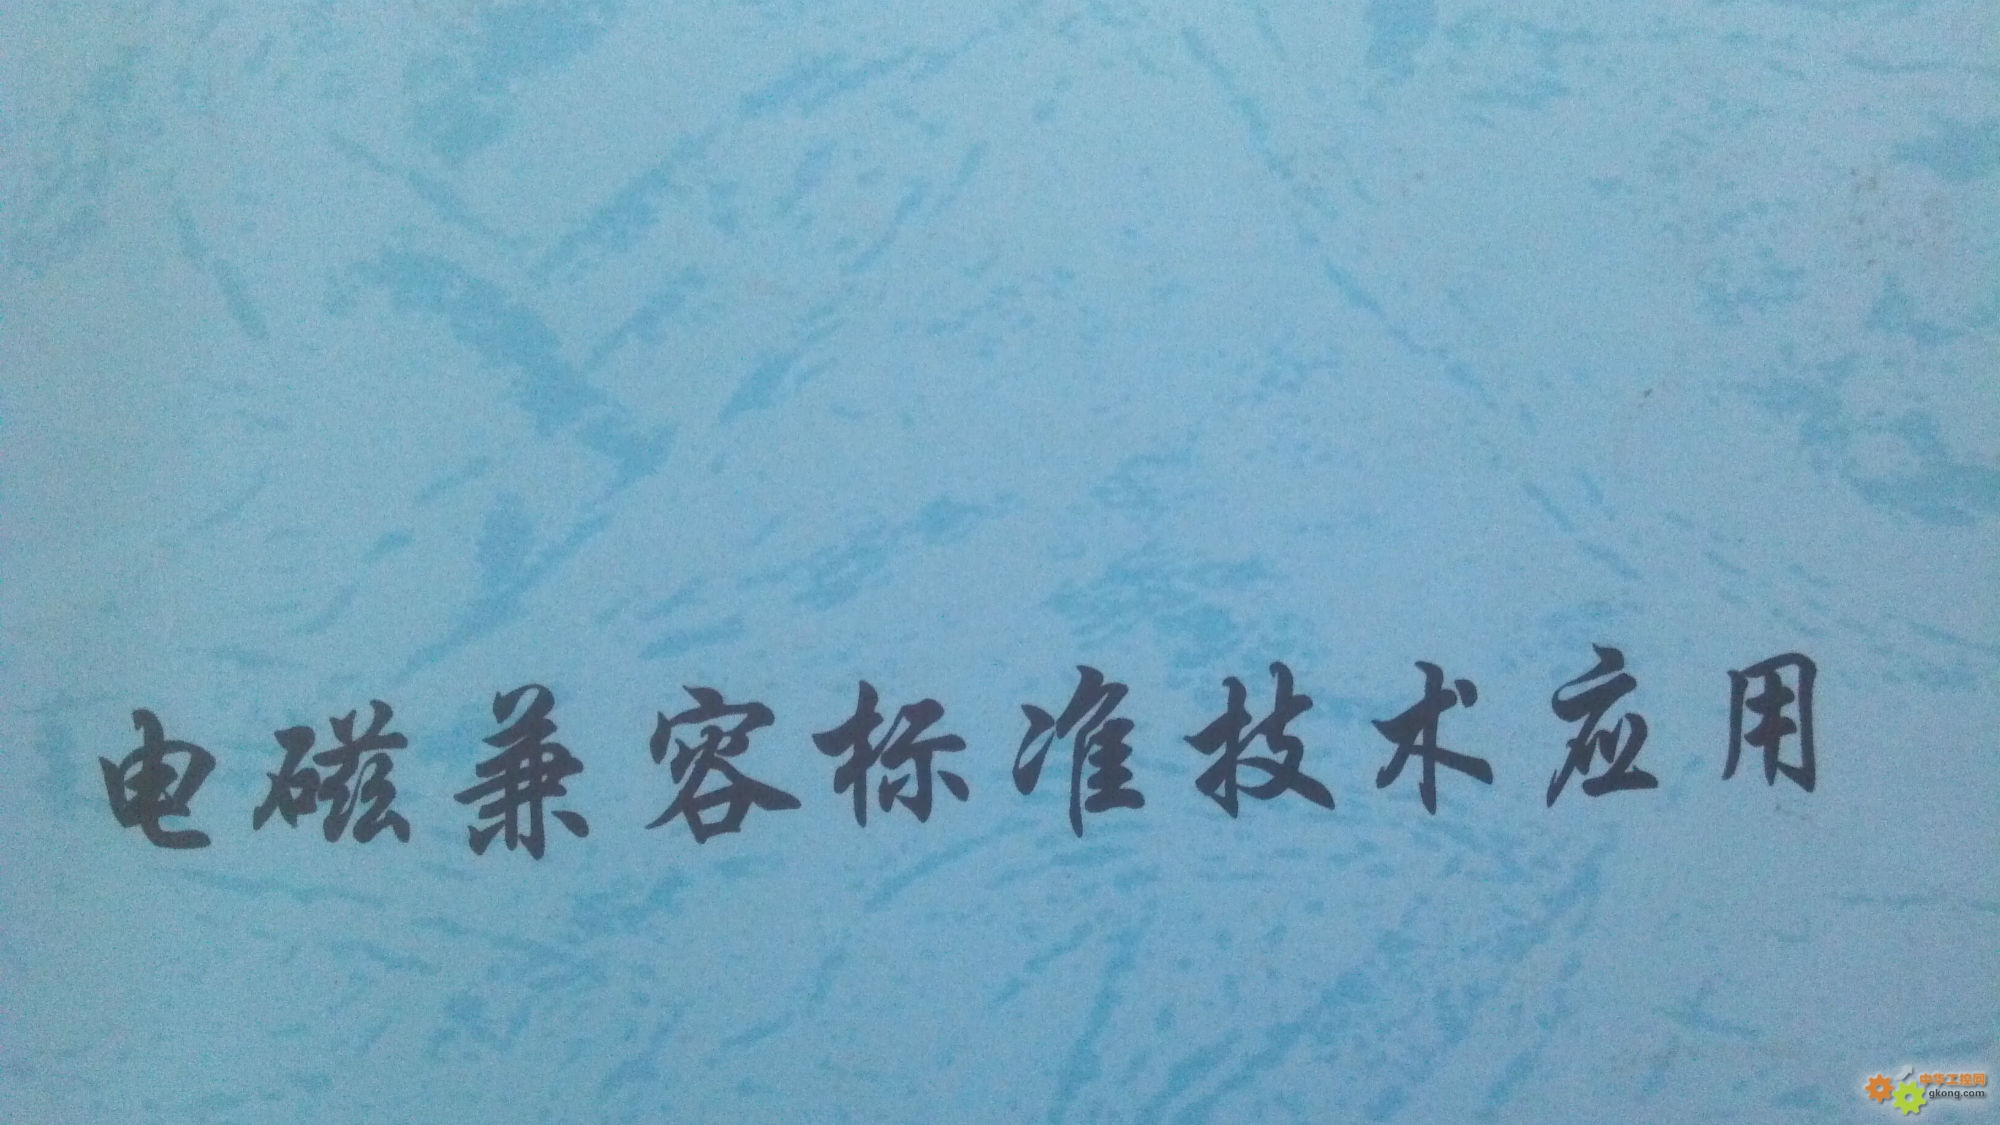 电磁兼容标准技术应用
中华工控网
gkong.com